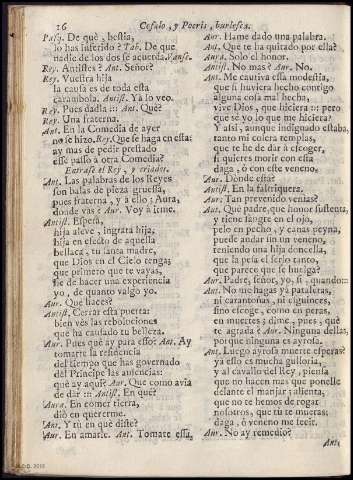 16 Cefalo, y Pocris, burlesca.
Pasq. De què, bestia,
lo has inferido? Tab. De que
nadie de los dos se acuerda. Vanse.
Rey. Antistes? Ant. Señor?
Rey. Vuestra hija
la causa es de toda esta
carambola. Antist. Yà lo veo.
Rey. Pues dadla ::: Ant. Què?
Rey. Una fraterna.
Ant. En la Comedia de ayer
no se hizo. Rey. Que se haga en esta:
ay mas de pedir prestado
esse passo à otra Comedia?
Entrase el Rey, y criados.
Ant. Las palabras de los Reyes
son balas de pieza gruessa,
pues fraterna, y à ello; Aura,
donde vàs? Aur. Voy à irme.
Antist. Espera,
hija aleve, ingrata hija,
hija en efecto de aquella
bellaca, tu santa madre,
que Dios en el Cielo tenga;
que primero que te vayas,
he de hacer una experiencia
yo, de quanto valgo yo.
Aur. Què haces?
Antist. Cerrar esta puerta:
bien vès las reboluciones
que ha causado tu belleza.
Aur. Pues què ay para esso? Ant. Ay
tomarte la residencia
del tiempo que has governado
del Principe las ausencias:
què ay aqui? Aur. Que como avia
de dàr ::: Antist. En què?
Aura. En comer tierra,
diò en quererme.
Ant. Y tù en què diste?
Aur. En amarle. Ant. Tomate essa,
Aur. Hame dado una palabra.
Ant. Què te ha quitado por ella?
Aura. Solo el honor.
Antist. No mas? Aur. No.
Ant. Me cautiva essa modestia,
que si huviera hecho contigo
alguna cosa mal hecha,
vive Dios, que hiciera ::: pero
què sè yo lo que me hiciera?
Y assi, aunque indignado estaba,
tanto mi colera templas,
que te he de dàr à escoger,
si quieres morir con esta
daga, ò con este veneno.
Aur. Donde està?
Antist. En la faltriquera.
Aur. Tan prevenido venias?
Ant. Què padre, que honor sustenta,
y tiene sangre en el ojo,
pelo en pecho, y canas peyna,
puede andar sin un veneno,
teniendo una hija doncella,
que la pesa el serlo tanto,
que parece que se huelga?
Aur. Padre, señor, yo, si, quando:::
Ant. No me hagas yà pataletas,
ni carantoñas, ni elguinces,
sino escoge, como en peras,
en muertes; dime, pues, què
te agrada? Aur. Ninguna dellas,
porque ninguna es ayrosa.
Ant. Luego ayrosa muerte esperas?
yà esso es mucha gulloria,
y al cavallo del Rey, piensa
que no hacen mas que ponelle
delante el manjar; alienta,
que no te hemos de rogar
nosotros, que tù te mueras;
daga, ò veneno me fecit.
Aur. No ay remedio?
Ant.